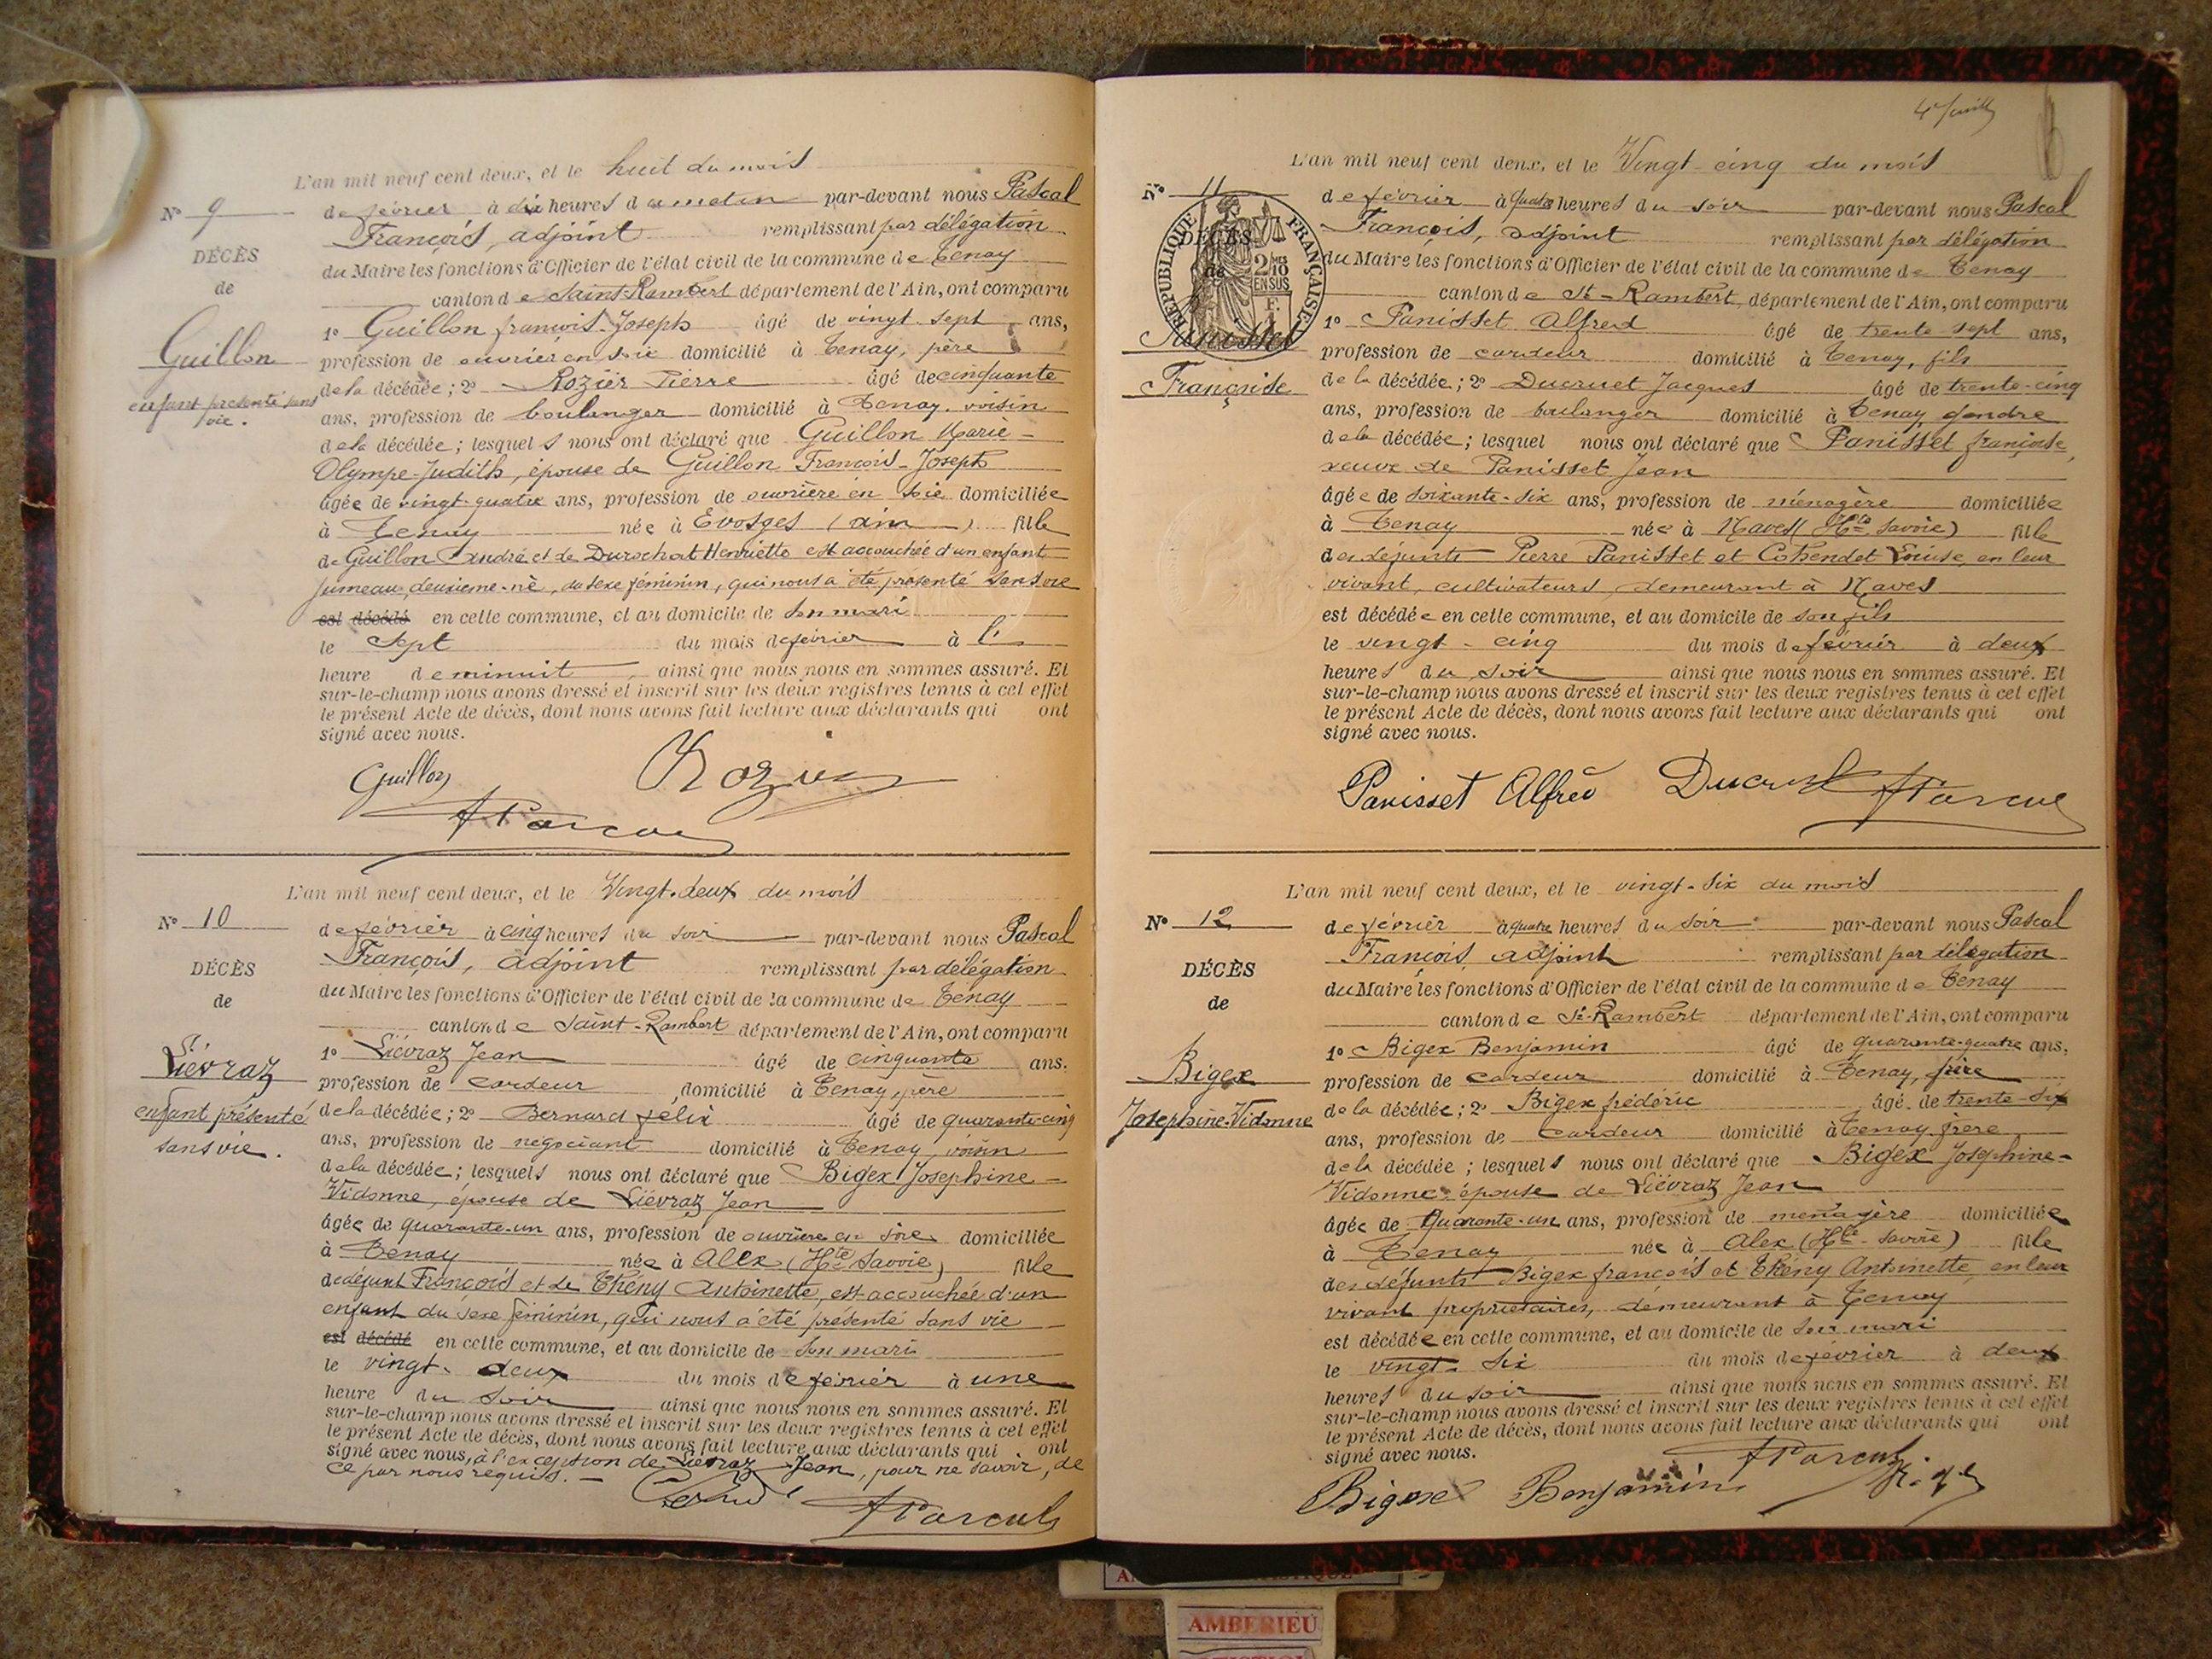 L'an mil neuf cent deux, et le huit du mois
N° 9
de février à dix heures du matin par-devant nous Pascal
François, adjoint remplissant par délégation
DÉCÈS
du Maire les fonctions d'Officier de l'état civil de la commune de Tenay
de
canton de Saint-Rambert département de l'Ain, ont comparu
1° Guillon françois-Joseph âgé de vingt-sept ans,
Guillon
profession de ouvrier en soie domicilié à Tenay, père
enfant présenté sans
vie.
de la décédée; 2° Rozier Pierre âgé de cinquante
ans, profession de boulanger domicilié à Tenay, voisin
de la décédée; lesquels nous ont déclaré que Guillon Marie-
Olympe-Judith, épouse de Guillon François-Joseph
âgée de vingt-quatre ans, profession de ouvrière en soie domiciliée
à Tenay née à Evosges (ain) fille
de Guillon André et de Durochat Henriette est accouchée d'un enfant
jumeau, deuxième-né, du sexe féminin, qui nous a été présenté sans vie
est décédé en cette commune, et au domicile de son mari
le sept du mois de février à l'
heure de minuit, ainsi que nous nous en sommes assuré. Et
sur-le-champ nous avons dressé et inscrit sur les deux registres tenus à cet effet
le présent Acte de décès, dont nous avons fait lecture aux déclarants qui ont
signé avec nous.
Guillon Rozier
Pascal
L'an mil neuf cent deux, et le Vingt-deux du mois
N° 10
de février à cinq heures du soir par-devant nous Pascal
François, adjoint remplissant par délégation
DÉCÈS
du Maire les fonctions d'Officier de l'état civil de la commune de Tenay
de
canton de Saint-Rambert département de l'Ain, ont comparu
1° Liévraz Jean âgé de cinquante ans.
Liévraz
profession de cardeur domicilié à Tenay, père
enfant présenté
sans vie.
de la décédée; 2° Bernard félix âgé de quarante-cinq
ans, profession de négociant domicilié à Tenay, voisin
de la décédée; lesquels nous ont déclaré que Bigex Josephine-
Vidonne, épouse de Liévraz Jean
âgée de quarante-un ans, profession de ouvrière en soie domiciliée
à Tenay née à Alex (Hte Savoie) fille
de défunt François et de Thény Antoinette, est accouchée d'un
enfant du sexe féminin, qui nous a été présenté sans vie
est décédé en cette commune, et au domicile de son mari
le vingt-deux du mois de février à une
heure du soir ainsi que nous nous en sommes assuré. Et
sur-le-champ nous avons dressé et inscrit sur les deux registres tenus à cet effet
le présent Acte de décès, dont nous avons fait lecture aux déclarants qui ont
signé avec nous, à l'exception de Liévraz Jean, pour ne savoir, de
ce par nous requis.
Pascal
4e feuille
L'an mil neuf cent deux, et le Vingt-cinq du mois
N° 11
de février à quatre heures du soir par-devant nous Pascal
François, adjoint remplissant par délégation
DÉCÈS
RÉPUBLIQUE FRANÇAISE
2/10 MES EN SUS
du Maire les fonctions d'Officier de l'état civil de la commune de Tenay
de
canton de St-Rambert, département de l'Ain, ont comparu
1° Panisset Alfred âgé de trente sept ans,
Panisset
profession de cardeur domicilié à Tenay, fils
Françoise
de la décédée; 2° Ducruet Jacques âgé de trente-cinq
ans, profession de boulanger domicilié à Tenay, gendre
de la décédée; lesquel nous ont déclaré que Panisset françoise,
veuve de Panisset Jean
âgée de soixante-six ans, profession de ménagère domiciliée
à Tenay née à Naves (Hte Savoie) fille
des défunts Pierre Panisset et Cohendet Louise, en leur
vivant, cultivateurs, demeurant à Naves
est décédée en cette commune, et au domicile de son fils
le vingt-cinq du mois de février à deux
heures du soir ainsi que nous nous en sommes assuré. Et
sur-le-champ nous avons dressé et inscrit sur les deux registres tenus à cet effet
le présent Acte de décès, dont nous avons fait lecture aux déclarants qui ont
signé avec nous.
Panisset Alfred Ducruet Pascal
L'an mil neuf cent deux, et le vingt-six du mois
N° 12
de février à quatre heures du soir par-devant nous Pascal
François, adjoint remplissant par délégation
DÉCÈS
du Maire les fonctions d'Officier de l'état civil de la commune de Tenay
de
canton de St-Rambert département de l'Ain, ont comparu
1° Bigex Benjamin âgé de quarante-quatre ans,
Bigex
profession de cardeur domicilié à Tenay, frère
Josephine-Vidonne
de la décédée; 2° Bigex frédéric âgé de trente-six
ans, profession de cardeur domicilié à Tenay, frère
de la décédée; lesquels nous ont déclaré que Bigex Josephine-
Vidonne épouse de Liévraz Jean
âgée de Quarante-un ans, profession de ménagère domiciliée
à Tenay née à Alex (Hte-Savoie) fille
des défunts Bigex françois et Thény Antoinette, en leur
vivant propriétaires, demeurant à Tenay
est décédée en cette commune, et au domicile de son mari
le vingt-six du mois de février à deux
heures du soir ainsi que nous nous en sommes assuré. Et
sur-le-champ nous avons dressé et inscrit sur les deux registres tenus à cet effet
le présent Acte de décès, dont nous avons fait lecture aux déclarants qui ont
signé avec nous.
Pascal
Bigex Benjamin
AMBERIEU